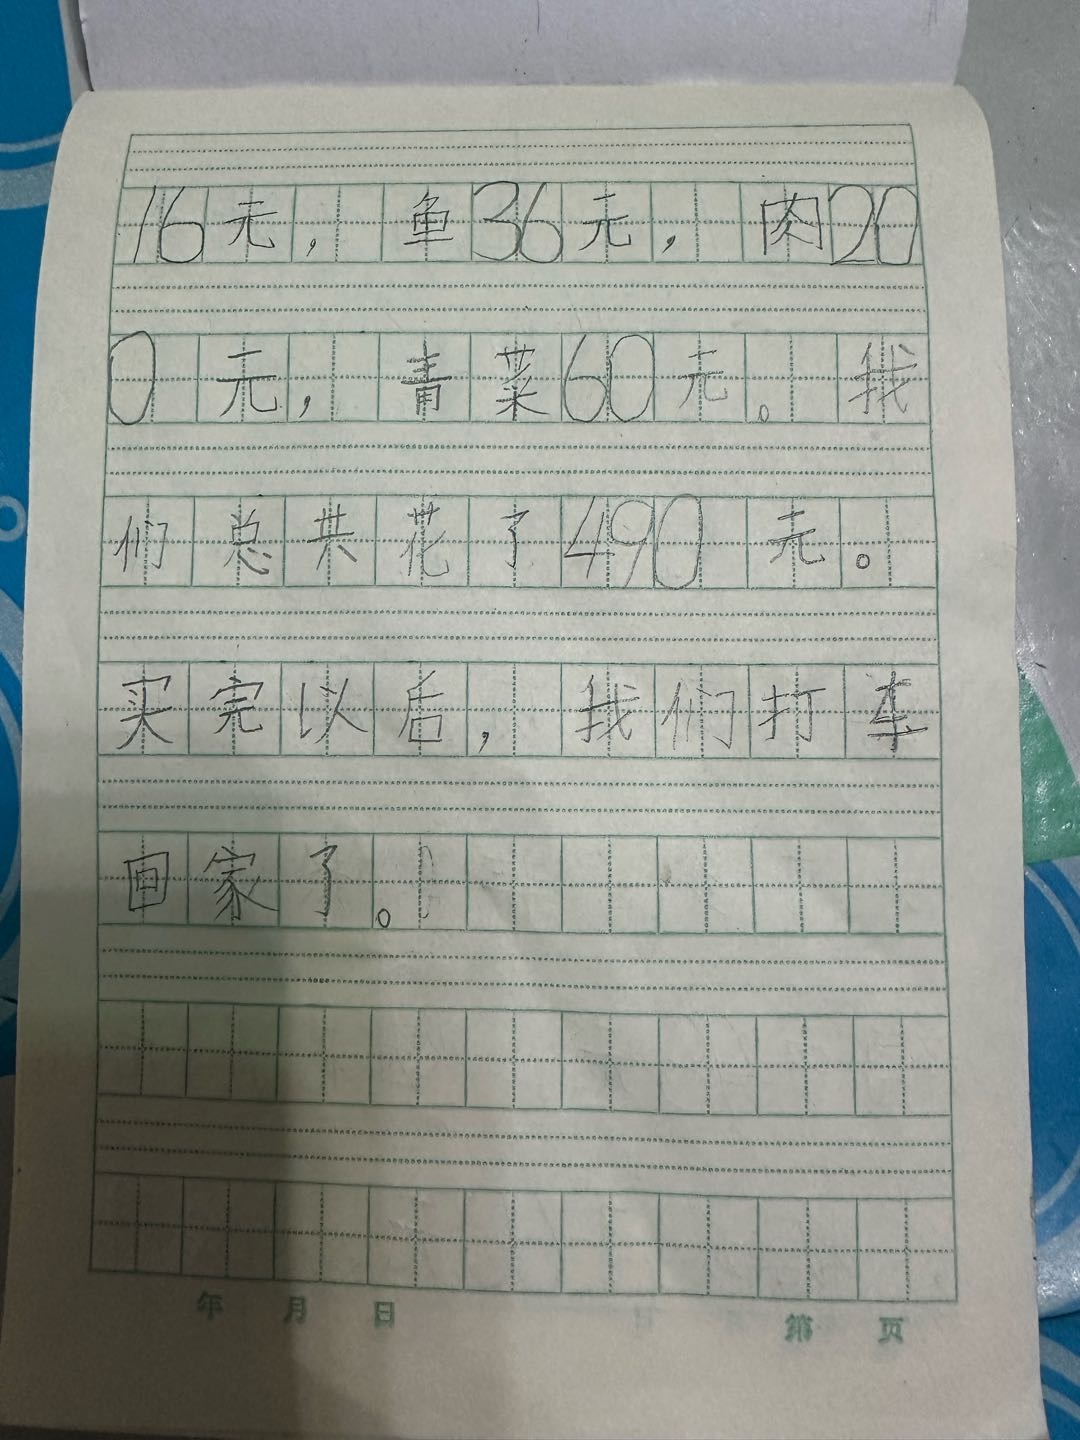 16元，鱼36元，肉20
0元，青菜60元。我
们总共花了490元。
买完以后，我们打车
回家了。
年 月 日 第 页